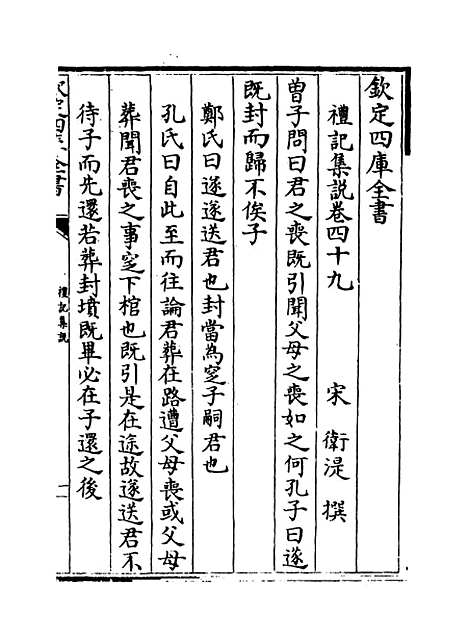 欽定四庫全書
禮記集說卷四十九　宋　衛湜　撰
曾子問曰君之喪既引聞父母之喪如之何孔子曰遂
既封而歸不俟子
鄭氏曰遂遂送君也封當為窆子嗣君也
孔氏曰自此至而往論君葬在路遭父母喪或父母
葬聞君喪之事窆下棺也既引是在途故遂送君不
待子而先還若葬封墳既畢必在子還之後
欽定四庫全書
禮記集說
一